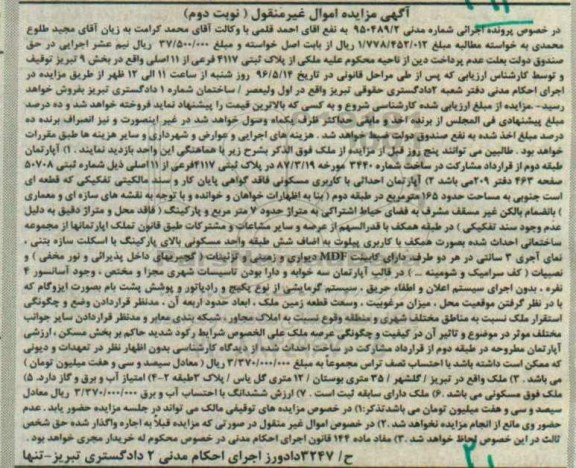 آگهی مزایده اموال غیرمنقول ( نوبت دوم)
در خصوص پرونده اجرائی شماره مدنی ۹۵۰۴۸۹/۲ به نفع آقای احمد قلمی با وکالت آقای محمد کرامت به زیان آقای مجید طلوع
محمدی به خواسته مطالبه مبلغ ۱/۷۷۸/۴۵۲/۰۱۳ ریال از بابت اصل خواسته و مبلغ ۳۷/۵۰۰/۰۰۰ ریال نیم عشر اجرایی در حق
صندوق دولت بعلت عدم پرداخت دین از ناحیه محکوم علیه ملکی از پلاک ثبتی ۴۱۱۷ فرعی از ۱۱ اصلی واقع در بخش ۹ تبریز توقیف
و توسط کارشناس ارزیابی که پس از طی مراحل قانونی در تاریخ ۹۶/۵/۱۴ روز شنبه از ساعت ۱۱ الی ۱۲ ظهر از طریق مزایده در
اجرای احکام مدنی دفتر شعبه ۲دادگستری حقوقی تبریز واقع در اول ولیعصر / ساختمان شماره ۱ دادگستری تبریز بفروش خواهد
رسید- مزایده از مبلغ ارزیابی شده کارشناسی شروع و به کسی که بالاترین قیمت را پیشنهاد نماید فروخته خواهد شد و ده درصد
مبلغ پیشنهادی فی المجلس از برنده اخذ و مابقی حداکثر ظرف یکماه وصول خواهد شد در غیر اینصورت و نیز انصراف برنده ده
درصد مبلغ اخذ شده به نفع صندوق دولت ضبط خواهد شد . هزینه های اجرایی و عوارض و شهرداری و سایر هزینه ها طبق مقررات
خواهد بود . طالبین می توانند پنج روز قبل از مزایده از ملک فوق الذکر بشرح زیر با هماهنگی این واحد بازدید نمایند . ۱) آپارتمان
طبقه دوم از قرارداد مشارکت در ساخت شماره ۳۴۴۰ مورخه ۸۷/۳/۱۹ در پلاک ثبتی ۴۱۱۷فرعی از ۱۱اصلی ذیل شماره ثبتی ۵۰۷۰۸
صفحه ۴۶۳ دفتر ۲۰۹می باشد ۲) آپارتمان احداثی با کاربری مسکونی فاقد گواهی پایان کار و سند مالکیتی تفکیکی که قطعه ای
است جنوبی به مساحت حدود ۱۶۵ مترمربع در طبقه دوم ( بنا به اظهارات خواهان و خوانده و با توجه به نقشه های سازه ای و معماری
) بانضمام بالکن غیر مسقف مشرف به فضای حیاط اشتراکی به متراژ حدود ۷ متر مربع و پارکینگ ( فاقد محل و متراژ دقیق به دلیل
عدم وجود سند تفکیکی ) در طبقه همکف با قدرالسهم از عرصه و سایر مشاعات و مشترکات طبق قانون تملک آپارتمانها از مجموعه
ساختمانی احداث شده بصورت همکف با کاربری پیلوت به اضاف شش طبقه واحد مسکونی بالای پارکینگ با اسکلت سازه بتنی ،
نمای آجری ۳ سانتی در هر دو طرف، دارای کابینت MDF دیواری و زمینی و تزئینات ( گچبریهای داخل پذیرائی و نور مخفی ) و
نصبیات ( کف سرامیک و شومینه ... ) در قالب آپارتمان سه خوابه و دارا بودن تاسیسات شهری مجزا و مختص ، وجود آسانسور ۴
نفره ، بدون اجرای سیستم اعلان و اطفاء حریق ، سیستم گرمایشی از نوع پکیج و رادیاتور و پوشش پشت بام بصورت ایزوگام که
با در نظر گرفتن موقعیت محل ، میزان مرغوبیت ، وسعت قطعه زمین ملک ، ابعاد حدود اربعه آن ، مدنظر قراردادن وضع و چگونگی
استقرار ملک نسبت به مناطق مختلف شهری و منطقه وقوع نسبت به املاک مجاور ، شبکه بندی معابر و مدنظر قراردادن سایر جوانب
مختلف موثر در موضوع و تاثیر آن در کیفیت و چگونگی عرصه ملک علی الخصوص شرایط رکود شدید حاکم بر بخش مسکن ، ارزشی
آپارتمان مطروحه در طبقه دوم از قرارداد مشارکت در ساخت احداث شده از دیدگاه کارشناسی بدون اظهار نظر در تعهدات و دیونی
که ممکن است داشته باشد با احتساب نصف تراس مجموعاً به مبلغ ۳/۳۷۰/۰۰۰/۰۰۰ ریال ( معادل سیصد و سی و هفت میلیون تومان )
می باشد . ۳) ملک واقع در تبریز / گلشهر / ۳۵ متری بوستان / ۱۲ متری گل یاس / پلاک ۳طبقه ۲-۴) امتیاز آب و برق و گاز دارد. ۵)
ملک فوق مسکونی می باشد .۶) ملک دارای سابقه ثبت است . ۷) ارزش ششدانگ با احتساب آب و برق ۳/۳۷۰/۰۰۰/۰۰۰ ریال معادل
سیصد و سی و هفت میلیون تومان می باشدتذکر:۱) در خصوص مزایده های توقیفی مالک می تواند در جلسه مزایده حضور یابد . عدم
حضور وی مانع از انجام مزایده نخواهد شد .۲) در خصوص اموال غیر منقول در صورتی که مزایده قبلاً به اجاره واگذار شده حق شخص
ثالث در این خصوص لحاظ خواهد شد .۳) مفاد ماده ۱۴۴ قانون اجرای احکام مدنی در خصوص محکوم له خریدار مجری خواهد بود .
ح/ ۳۲۴۷دادورز اجرای احکام مدنی ۲ دادگستری تبریز-تنها